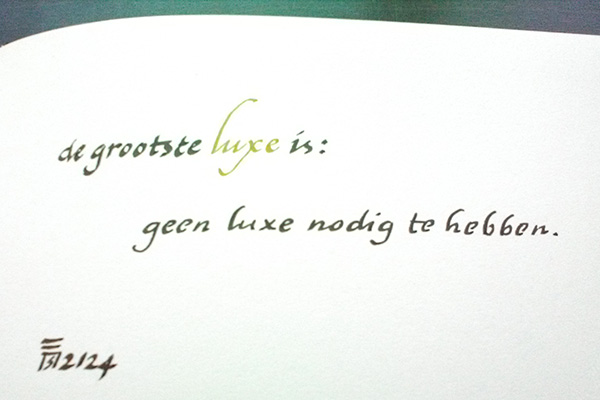 de grootste luxe is:
geen luxe nodig te hebben.
2124